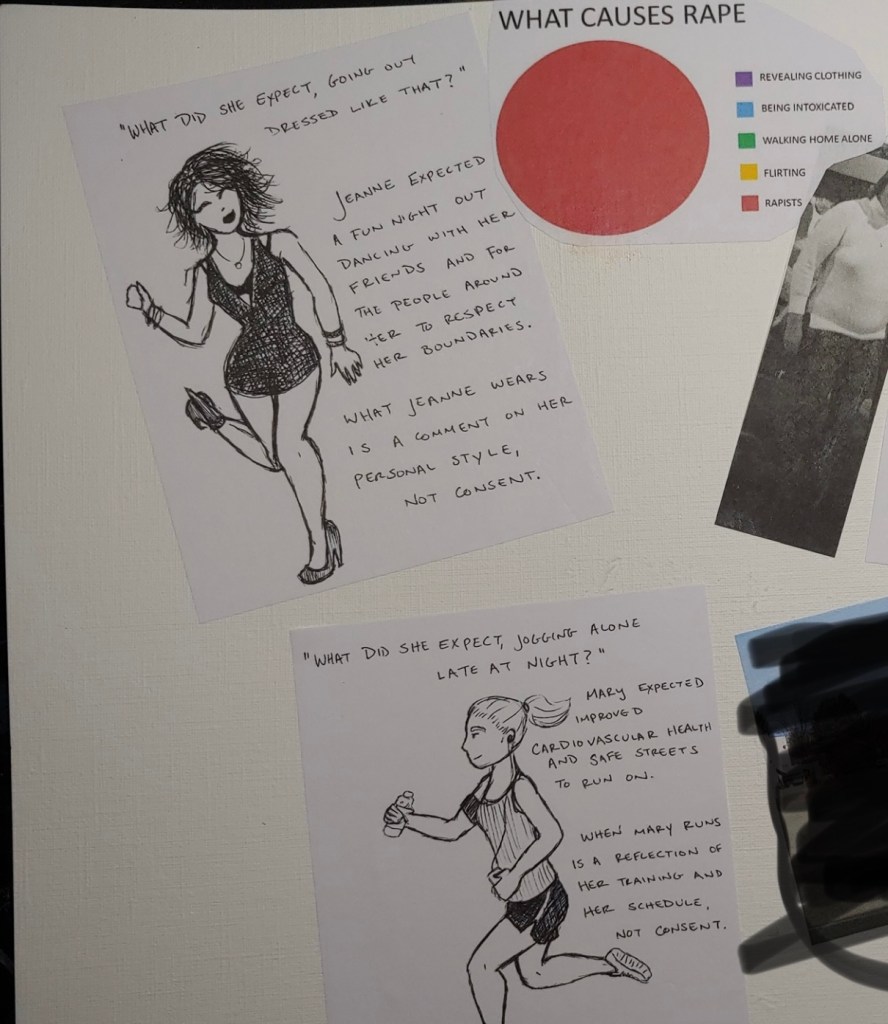 "WHAT DID SHE EXPECT, GOING OUT
DRESSED LIKE THAT?"
JEANNE EXPECTED
A FUN NIGHT OUT
DANCING WITH HER
FRIENDS AND FOR
THE PEOPLE AROUND
HER TO RESPECT
HER BOUNDARIES.
WHAT JEANNE WEARS
IS A COMMENT ON HER
PERSONAL STYLE,
NOT CONSENT.
WHAT CAUSES RAPE
REVEALING CLOTHING
BEING INTOXICATED
WALKING HOME ALONE
FLIRTING
RAPISTS
"WHAT DID SHE EXPECT, JOGGING ALONE
LATE AT NIGHT?"
MARY EXPECTED
IMPROVED
CARDIOVASCULAR HEALTH
AND SAFE STREETS
TO RUN ON.
WHEN MARY RUNS
IS A REFLECTION OF
HER TRAINING AND
HER SCHEDULE,
NOT CONSENT.